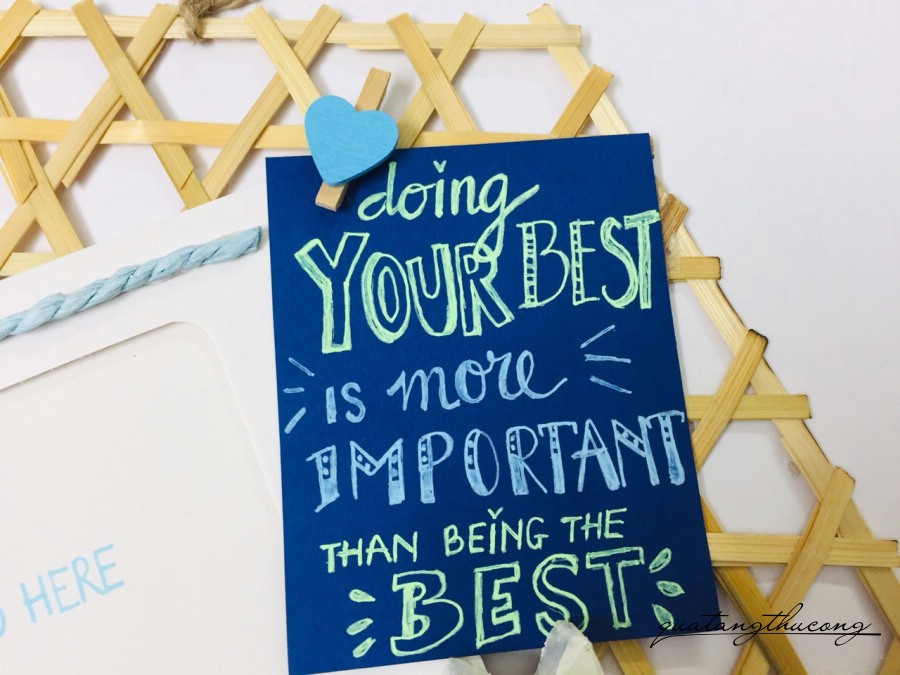 doing
YOUR BEST
IS more
IMPORTANT
THAN BEING THE
BEST
HERE
quatangthucong